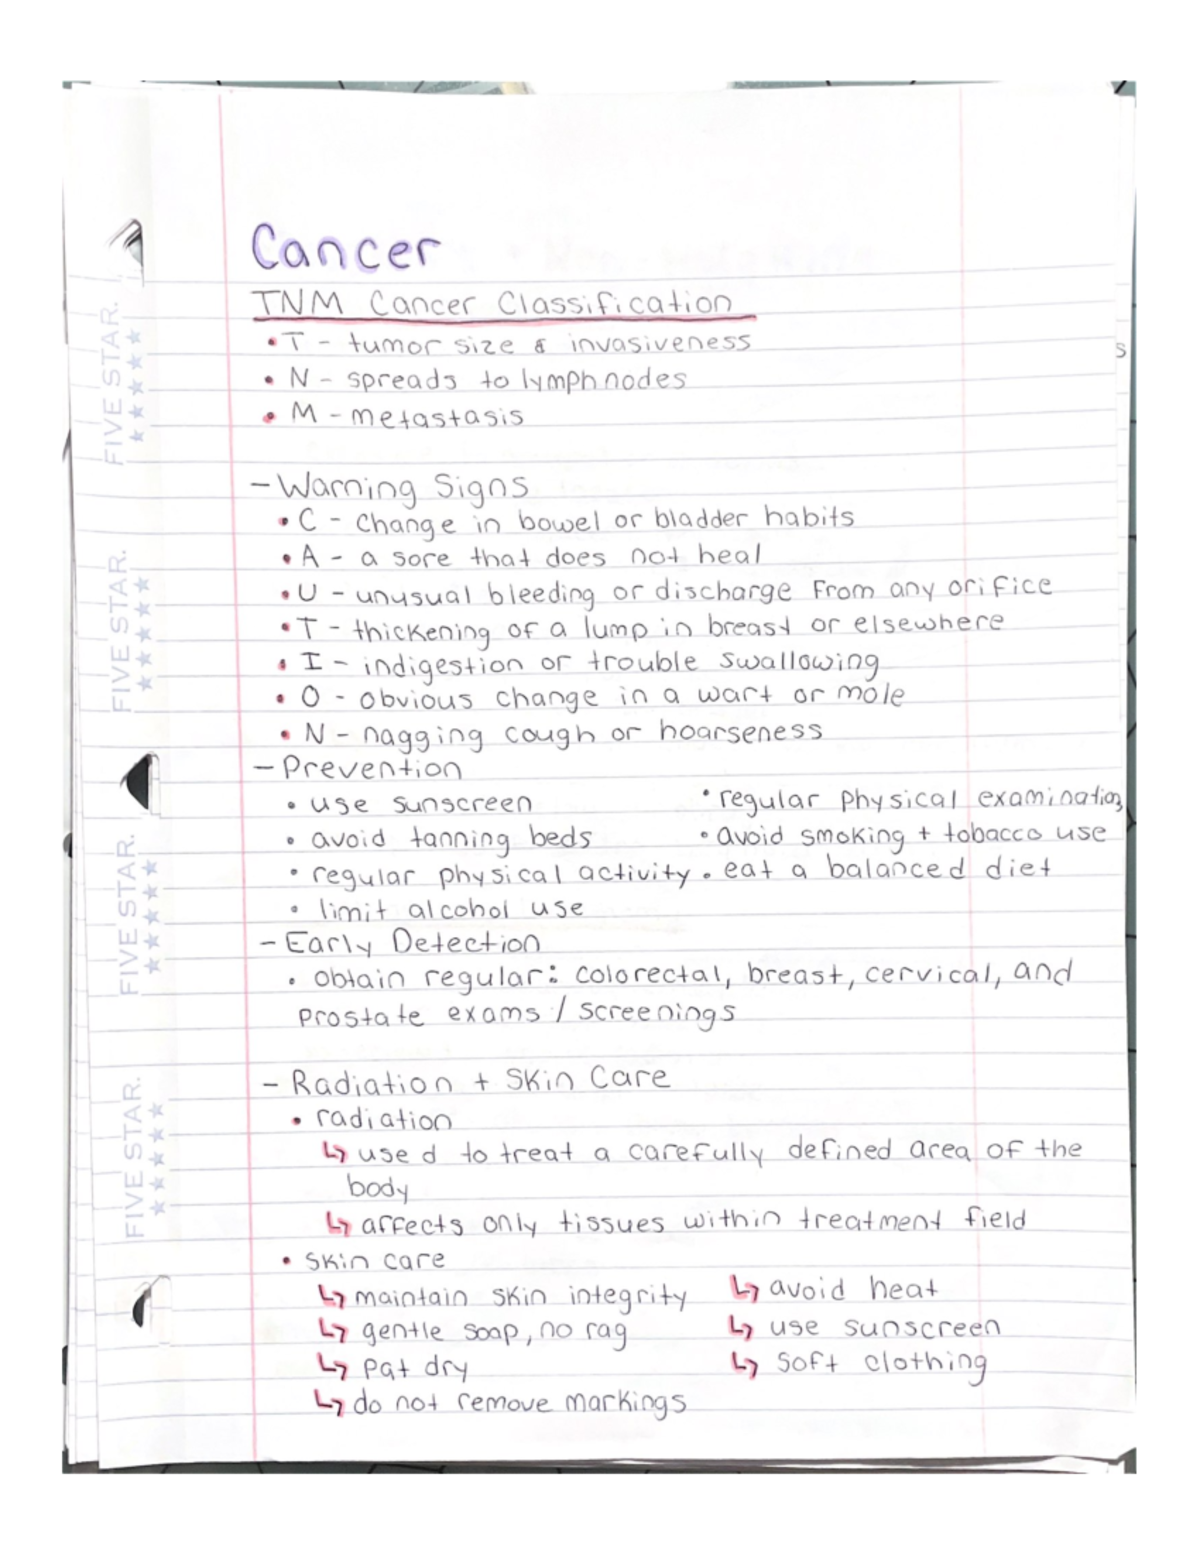 Cancer
TNM Cancer Classification
• T - tumor size & invasiveness
s
• N - spreads to lymph nodes
• M - metastasis
- Warning Signs
• C - change in bowel or bladder habits
• A - a sore that does not heal
• U - unusual bleeding or discharge from any orifice
• T - thickening of a lump in breast or elsewhere
• I - indigestion or trouble swallowing
• O - obvious change in a wart or mole
• N - nagging cough or hoarseness
- Prevention
• use sunscreen • regular physical examination
• avoid tanning beds • avoid smoking + tobacco use
• regular physical activity • eat a balanced diet
• limit alcohol use
- Early Detection
• obtain regular: colorectal, breast, cervical, and
prostate exams / screenings
- Radiation + Skin Care
• radiation
↳ used to treat a carefully defined area of the
body
↳ affects only tissues within treatment field
• skin care
↳ maintain skin integrity ↳ avoid heat
↳ gentle soap, no rag ↳ use sunscreen
↳ pat dry ↳ soft clothing
↳ do not remove markings
FIVE STAR.
FIVE STAR.
FIVE STAR.
FIVE STAR.